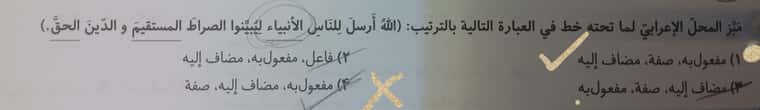 مَيِّز المحلّ الإعرابيّ لما تحته خط في العبارة التالية بالترتيب: (اللهُ أَرسلَ لِلنّاسِ الأنبياء لِيُبيِّنوا الصراطَ المستقيمَ و الدّينَ الحقَّ.)
۱) مفعول‌به، صفة، مضاف إليه
۲) فاعل، مفعول‌به، مضاف إليه
۳) مضاف إليه، صفة، مفعول‌به
۴) مفعول‌به، مضاف إليه، صفة